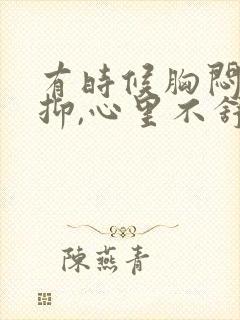 有时候胸闷
抑,心里不舒
陳燕青